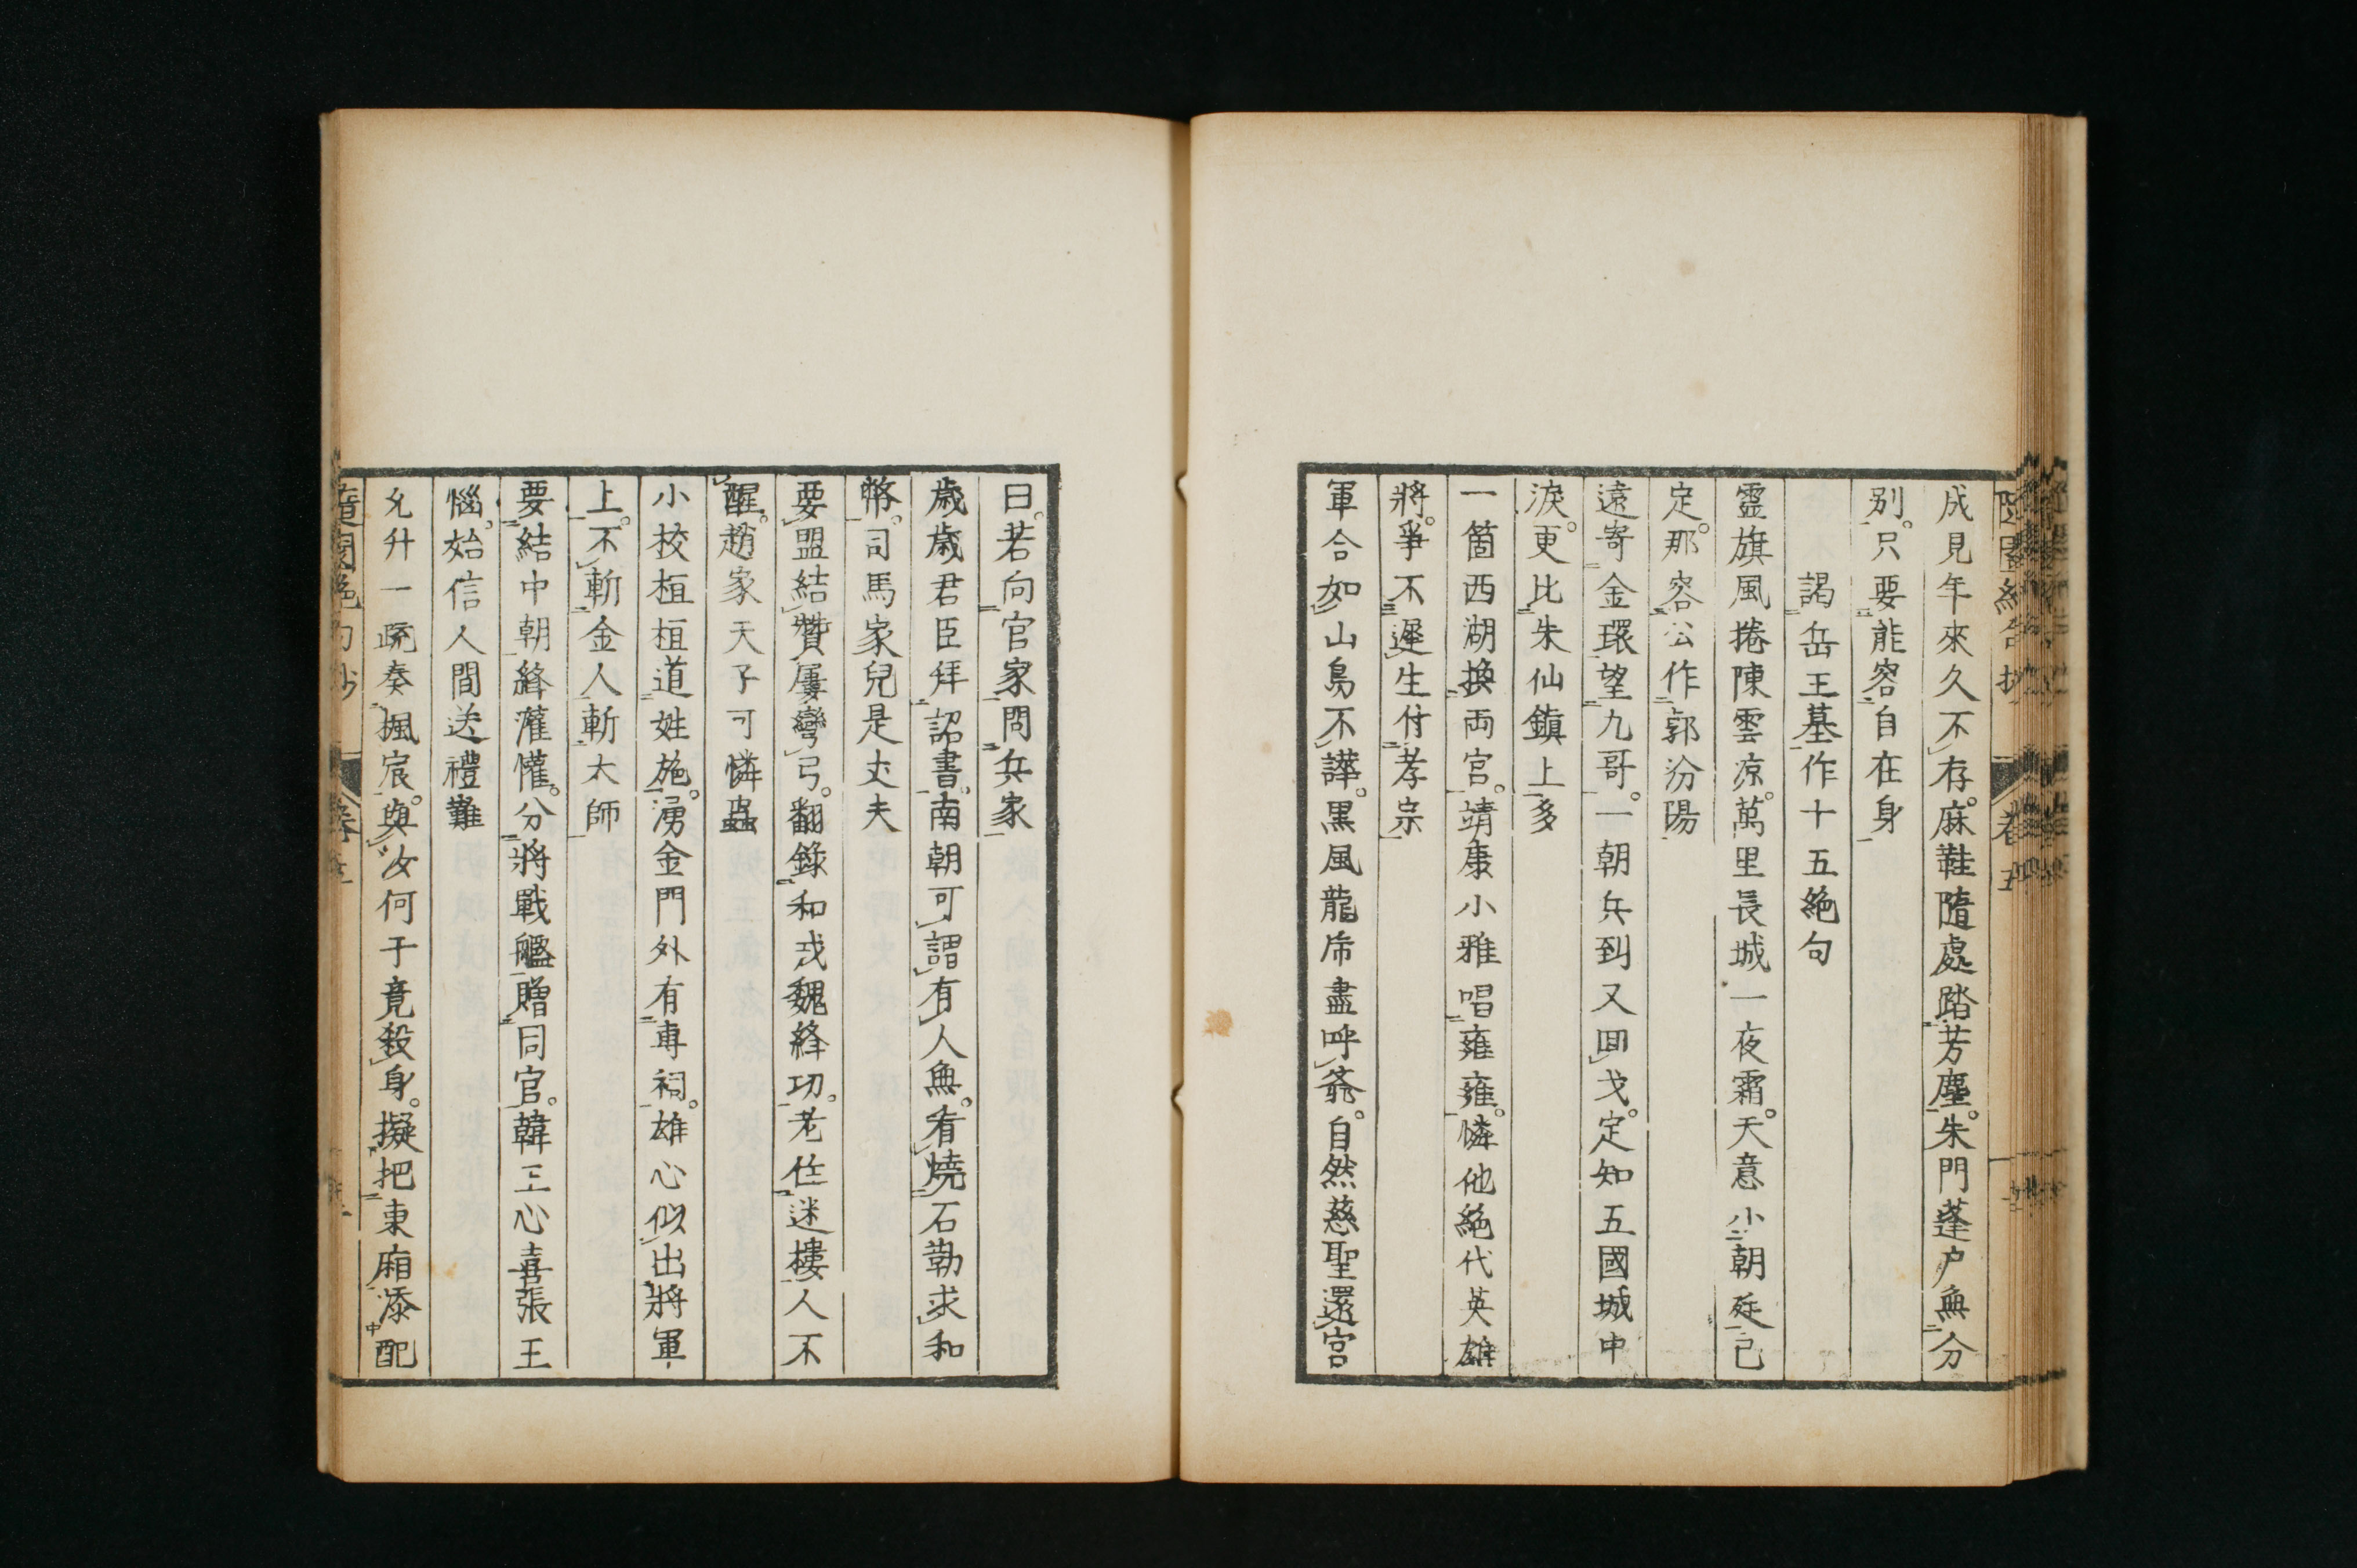 成見年來久不存。麻鞋隨處踏芳塵。朱門蓬户無分
別。只要能容自在身
謁岳王墓作十五絶句
靈旗風捲陳雲凉。萬里長城一夜霜。天意小朝廷已
定。那容公作郭汾陽
遠寄金環望九哥。一朝兵到又囬戈。定知五國城中
淚。更比朱仙鎮上多
一箇西湖換両宮。靖康小雅唱雍雍。憐他絶代英雄
將。爭不遲生付孝宗
軍合如山鳥不譁。黑風龍帟盡呼爺。自然慈聖還宮
日。若向官家問兵家
歲歲君臣拜詔書。南朝可謂有人無。看燒石勒求和
幣。司馬家兒是丈夫
要盟結贊屢彎弓。翻錄和戎魏絳功。老住迷樓人不
醒。趙家天子可憐蟲
小校桓桓道姓施。湧金門外有専祠。雄心似出將軍
上。不斬金人斬太師
要結中朝絳灌懽。分將戰艦贈同官。韓王心喜張王
惱。始信人間送禮難
允升一疏奏楓宸。與汝何干竟殺身。擬把東廂添配
隨園絶句抄 卷五